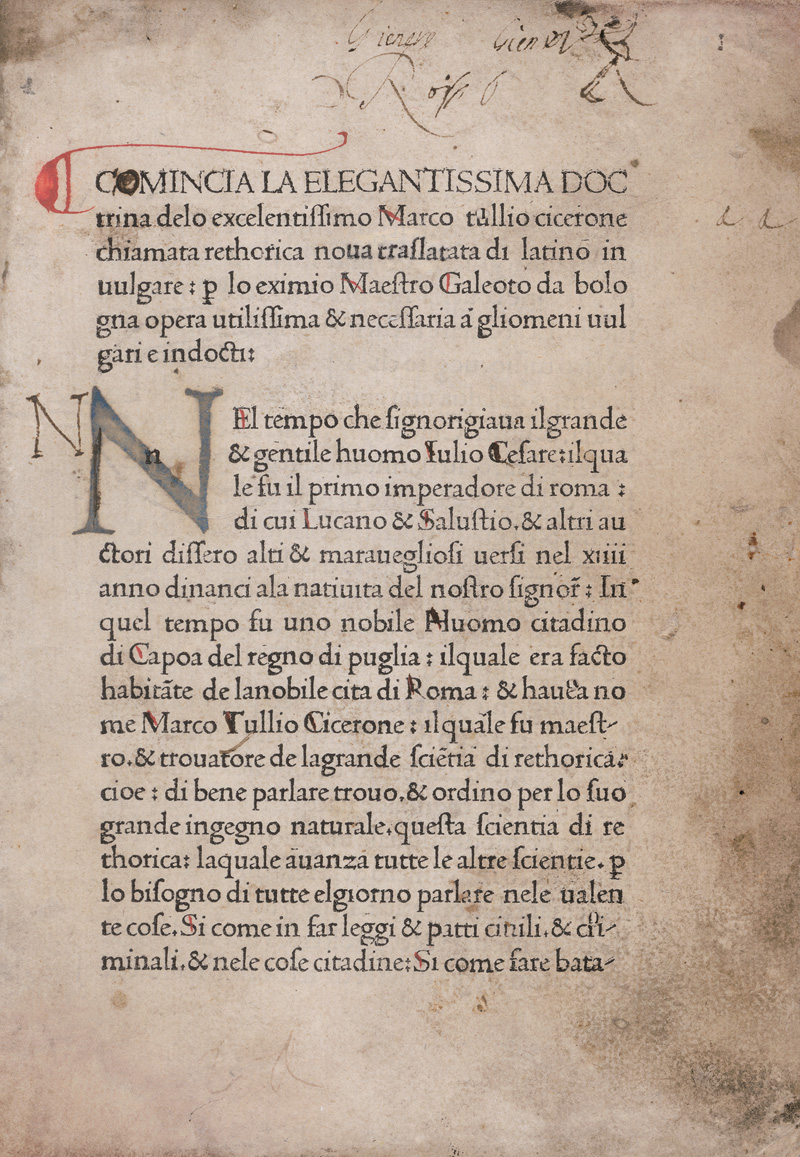 COMINCIA LA ELEGANTISSIMA DOC
trina delo excelentiſſimo Marco tullio cicerone
chiamata rethorica noua traſlatata di latino in
uulgare : ꝑ lo eximio Maeſtro Galeoto da bolo
gna opera utiliſſima & neceſſaria a gliomeni uul
gari e indocti:
N
N
n
El tempo che ſignorigiaua ilgrande
& gentile huomo Iulio Ceſare:ilqua
le fu il primo imperadore di roma :
di cui Lucano & Saluſtio.& altri au
ctori diſſero alti & marauegliofi uerſi nel xiiii
anno dinanci ala natiuita del noſtro ſignor̃ : In
quel tempo fu uno nobile Huomo citadino
di Capoa del regno di puglia : ilquale era facto
habitãte de lanobile cita di Roma : & haueua no
me Marco Tullio Cicerone : ilquale fu maeſt-
ro.& trouatore de lagrande ſciẽtia di rethorica:
cioe : di bene parlare trouo.& ordino per lo ſuo
grande ingegno naturale.queſta ſcientia di re
thorica: laquale auanza tutte le altre ſcientie. ꝑ
lo biſogno di tutte elgiorno parlare nele ualen
te coſe.Si come in far leggi & patti ciuili.& cri-
minali.& nele coſe citadine:Si come fare bata-